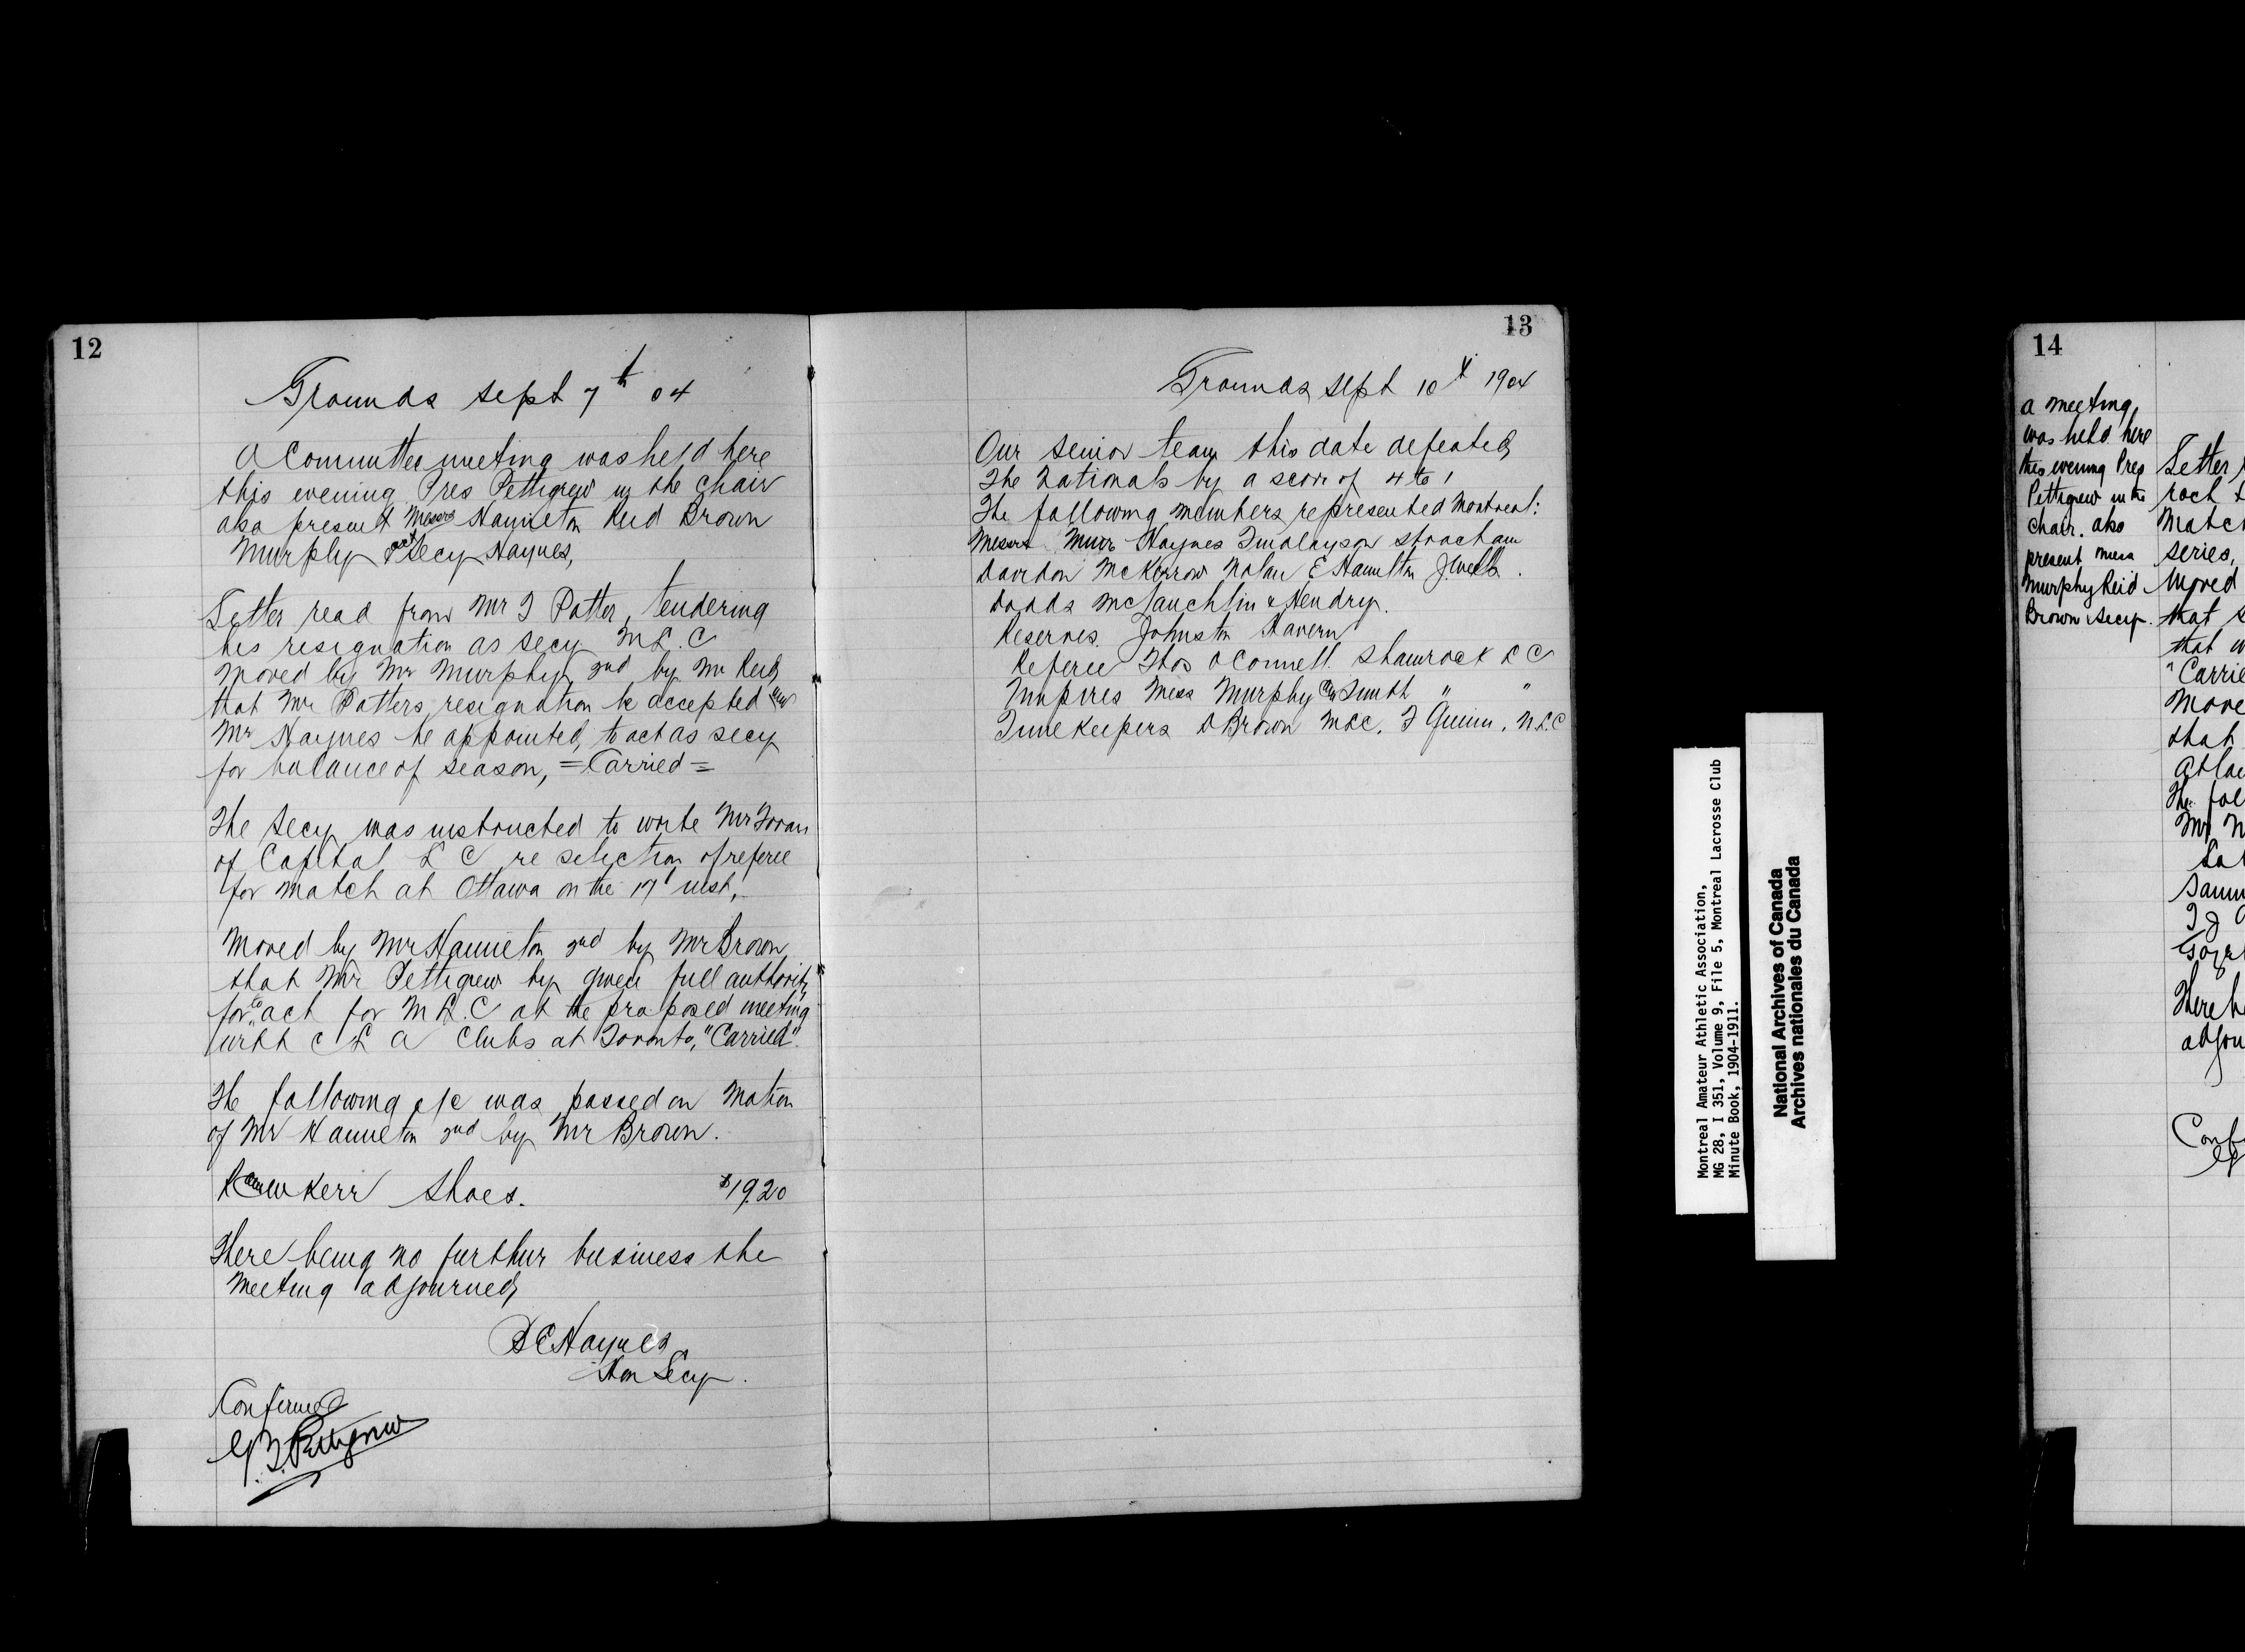 12
Grounds Sept 7th 04
A Committee meeting was held here
this evening Pres Pettigrew in the chair
also present Messrs Hamilton Reid Brown
Murphy & act Secy Haynes,
Letter read from Mr T Patter, tendering
his resignation as Secy M L.C
Moved by Mr Murphy 2nd by Mr Reid
that Mr Patters resignation be accepted and
Mr Haynes be appointed, to act as secy
for balance of season, = Carried =
The Secy was instructed to write Mr Foran
of Capital L C re selection of referee
for match at Ottawa on the 17t inst,
Moved by Mr Hamilton 2nd by Mr Brown
that Mr Pettigrew by given full authority
for to act for M L.C at the proposed meeting
with C L A Clubs at Toronto, "Carried"
The following a/c was passed on motion
of Mr Hamilton 2nd by Mr Brown.
Kerr Shoes. $19.20
There being no furthur business the
meeting adjourned,
Haynes
Hon Secy.
Confirmed
Pettigrew
13
Grounds Sept 10t 1904
Our Senior team this date defeated
The Nationals by a score of 4 to 1
The following members represented Montreal:
Messrs Muir Haynes Finlayson Strachan
McKerrow Nolan E Hamilton
Dodds McLauchlin & Hendry.
Reserves. Johnston Kavern
Referee Thos OConnell Shamrock L C
Umpires Mess Murphy and Smith " "
Time Keepers D Brown MLC. T Quinn. N.L.C
Montreal Amateur Athletic Association,
MG 28, I 351, Volume 9, File 5, Montreal Lacrosse Club
Minute Book, 1904-1911.
National Archives of Canada
Archives nationales du Canada
14
A meeting
was held here
this evening Pres
Pettigrew in the
chair. also
present Mess
Murphy Reid
Brown Secy.
Letter
Match
series,
Moved
that
that
"Carrie
Move
that
The fol
Mr
There b
adjou
Conf